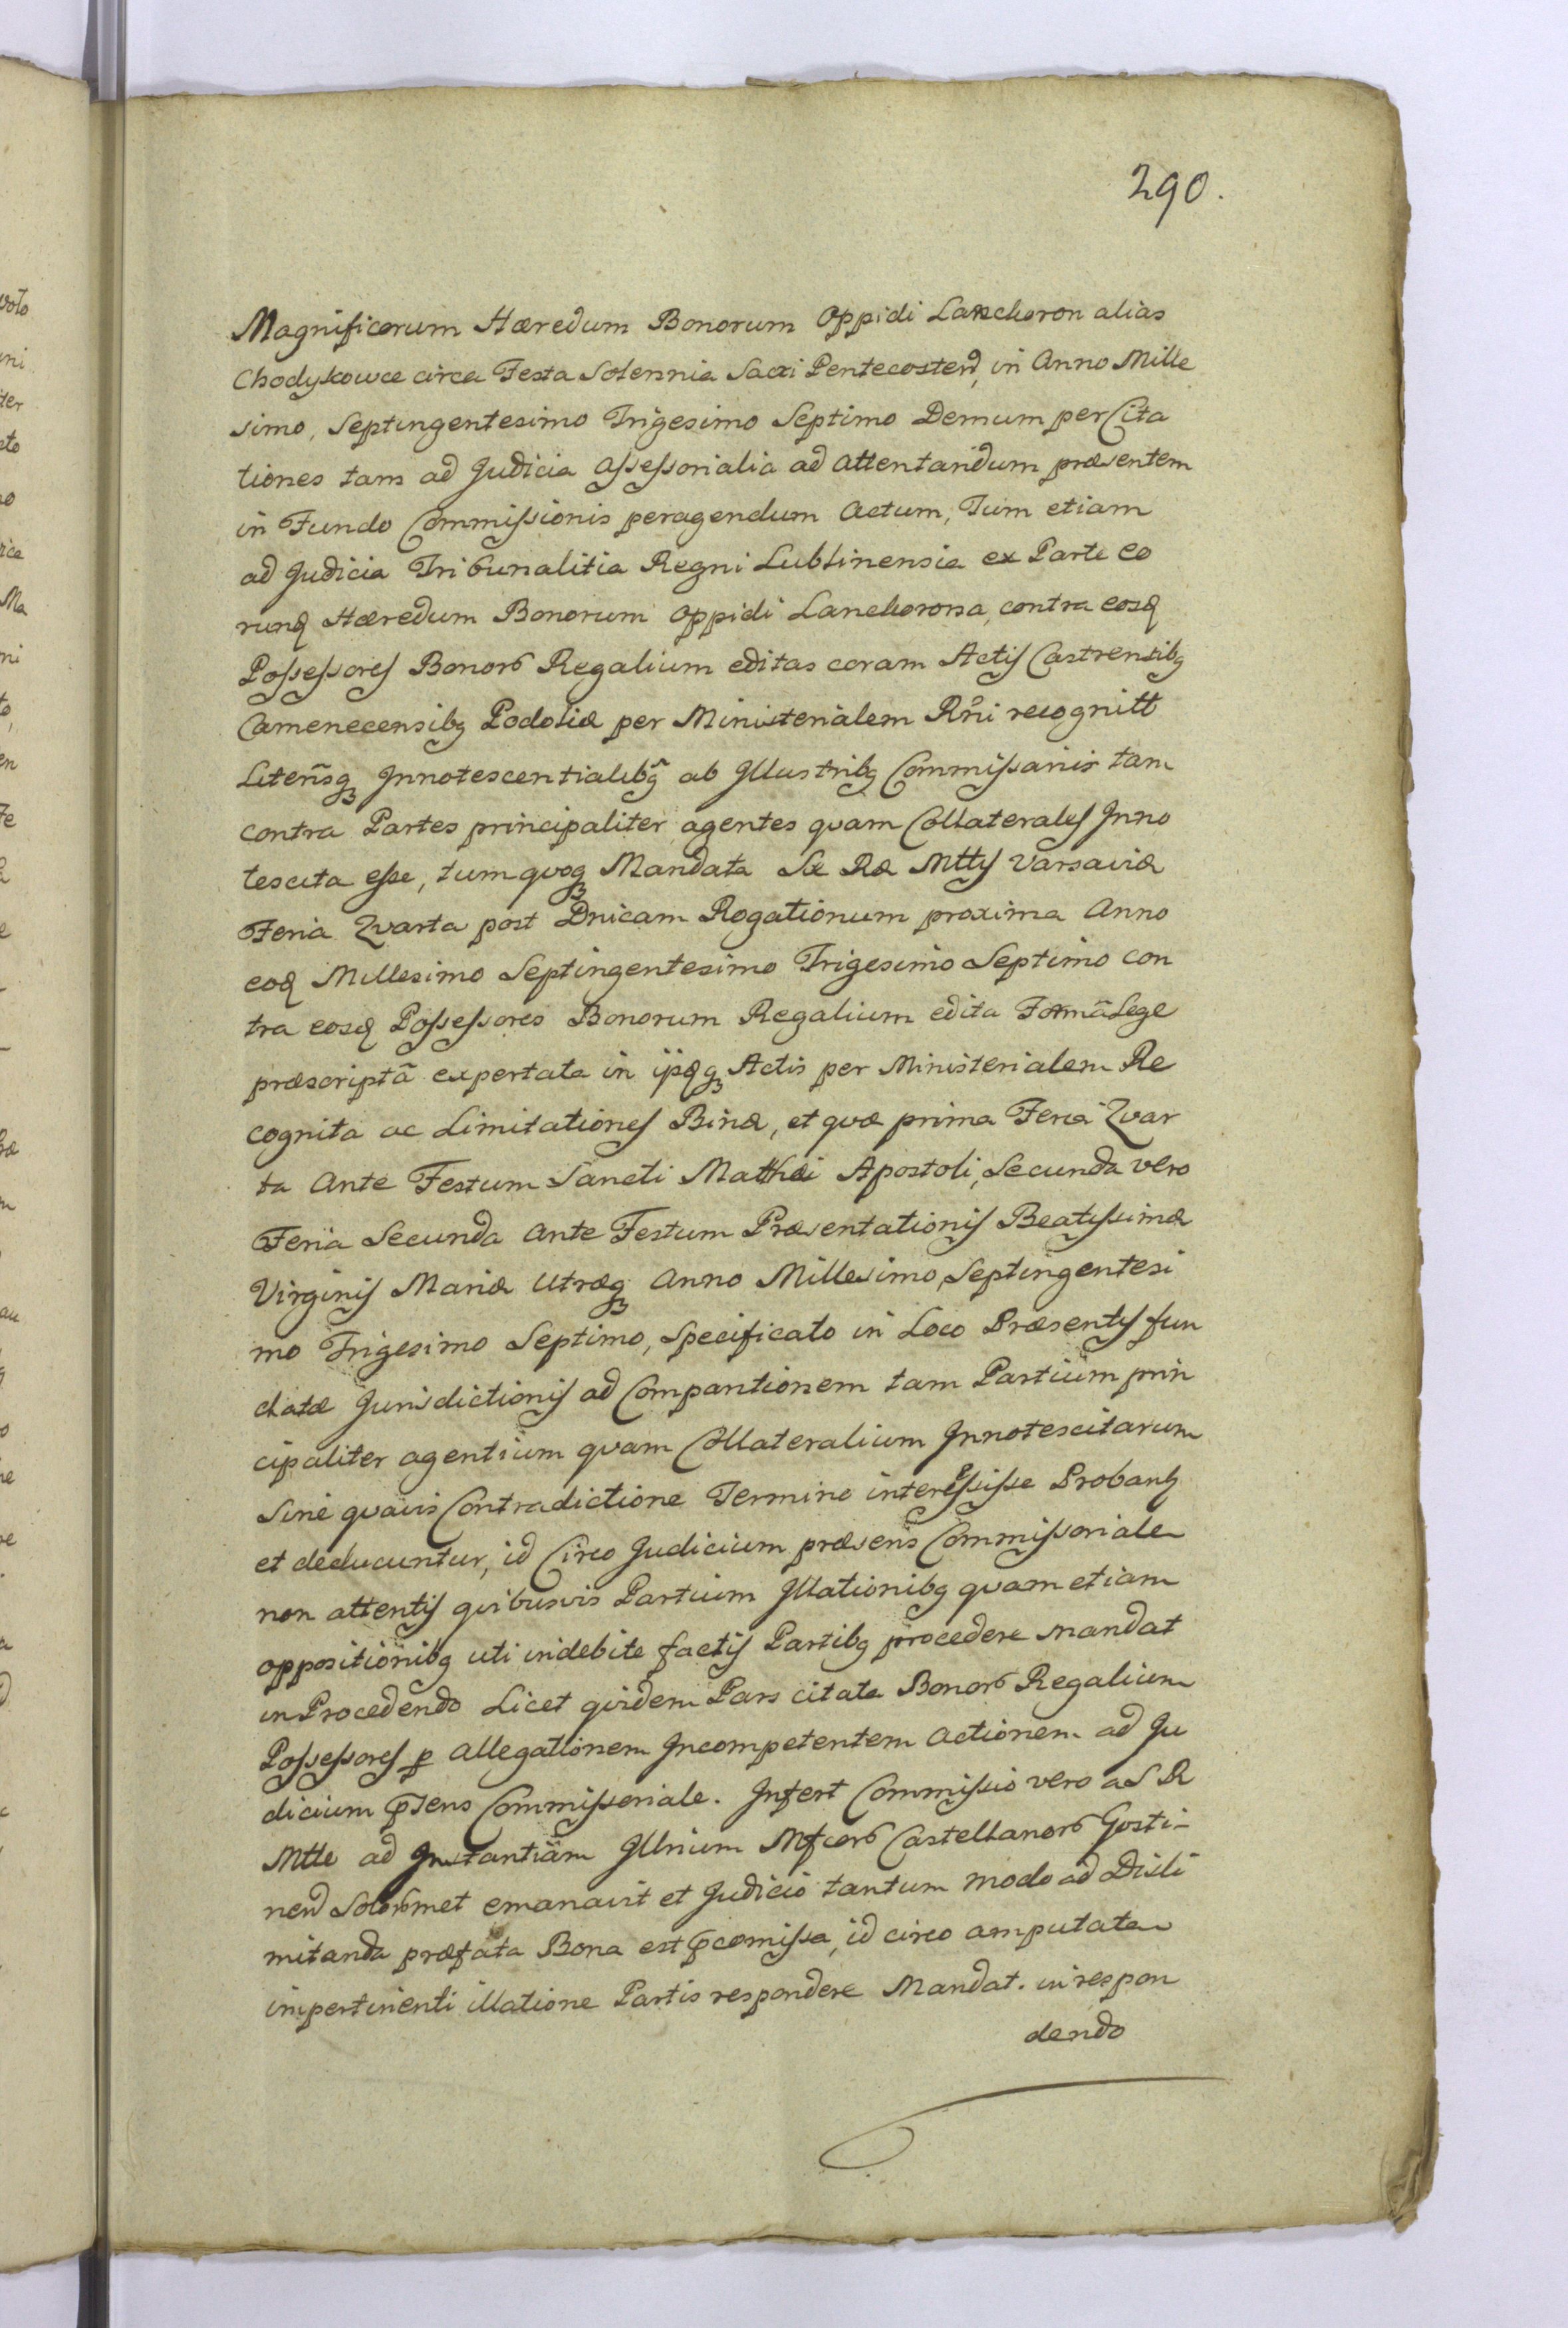 290.
Magnificorum Hæredum Bonorum Oppidi Lanckoron alias
Chodykowce circa Festa Solennia Sacri Pentecosten, in Anno Mille
simo, Septingentesimo Trigesimo Septimo Demum per Cita
tiones tam ad Judicia Assessorialia ad attentandum præsentem
in Fundo Commissionis peragendum Actum, Tum etiam
ad Judicia Tribunalitia Regni Lublinensia ex Parte eo
rundꝫ Hæredum Bonorum Oppidi Lanckorona, contra eosdꝫ
Possessores Bonorꝫ Regalium editas coram Actis Castrensibꝫ
Camenecensibꝫ Podoliæ per Ministerialem Rñi recognitt
Literisqꝫ Innotescentialibꝫ ab Illustribꝫ Commissariis tam
contra Partes principaliter agentes quam Collaterales Inno
tescita esse, tum quoqꝫ Mandata Sæ Ræ Mttis Varsaviæ
Feria Quarta post Dnicam Rogationum proxima Anno
eodꝫ Millesimo Septingentesimo Trigesimo Septimo con
tra eosdꝫ Possessores Bonorum Regalium edita Formâ Lege
præscriptâ expertata in iisdꝫqꝫ Actis per Ministerialem Re
cognita ac Limitationes Binæ, et quæ prima Feria Quar
ta Ante Festum Sancti Mathæi Apostoli, Secunda vero
Feria Secunda Ante Festum Præsentationis Beatissimæ
Virginis Mariæ utræqꝫ Anno Millesimo Septingentesi
mo Trigesimo Septimo, Specificato in Loco Præsentis fun
datæ Jurisdictionis ad Comparitionem tam Partium prin
cipaliter agentium quam Collateralium Innotescitarum
Sine quavis Contradictione Termino interessisse Probantꝫ
et deducuntur, id Circo Judicium præsens Commissoriale
non attentis quibusvis Partium Illationibꝫ quam etiam
oppositionibꝫ uti indebite factis Partibꝫ procedere mandat
in Procedendo Licet quidem Pars citata Bonorꝫ Regalium
Possessores ꝑ Allegationem Incompetentem Actionem ad Ju
dicium p̃sens Commissoriale. Infert Commissio vero a S R
Mtte ad Instantiam Illrium Mfcorꝫ Castellanorꝫ Gosti-
nen Solorꝫmet emanavit et Judicio tantum modo ad Disli
mitanda præfata Bona est p̃comissa, id circo amputata
impertinenti illatione Partis respondere Mandat. in respon
dendo